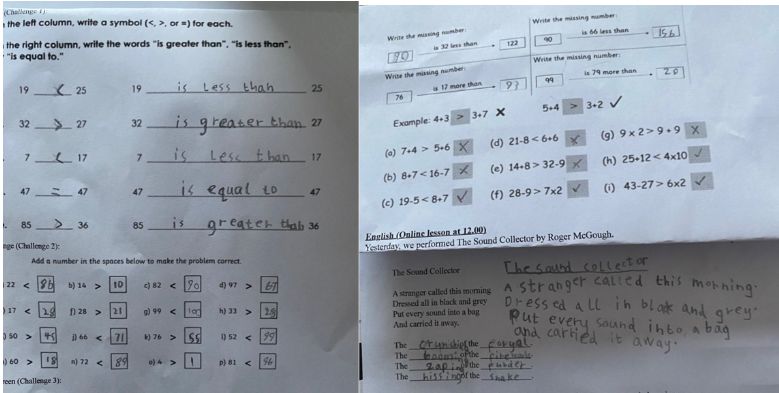 (Challenge 1):
the left column, write a symbol (<, >, or =) for each.
the right column, write the words "is greater than", "is less than",
"is equal to."
19 < 25 19 is Less than 25
32 > 27 32 is greater than 27
7 < 17 7 is Less than 17
47 = 47 47 is equal to 47
85 > 36 85 is greater than 36
nge (Challenge 2):
Add a number in the spaces below to make the problem correct.
22 < 86 b) 14 > 10 c) 82 < 90 d) 97 > 67
17 < 28 f) 28 > 21 g) 99 < 100 h) 33 > 28
) 50 > 45 j) 66 < 71 k) 76 > 55 l) 52 < 99
) 60 > 18 n) 72 < 89 o) 4 > 1 p) 81 < 96
reen (Challenge 3):
Write the missing number: Write the missing number:
90 is 32 less than 122 90 is 66 less than 156
Write the missing number: Write the missing number:
76 is 17 more than 93 99 is 79 more than 20
Example: 4+3 > 3+7 X 5+4 > 3+2 ✓
(a) 7+4 > 5+6 X (d) 21-8 < 6+6 X (g) 9 x 2 > 9 + 9 X
(b) 8+7 < 16-7 X (e) 14+8 > 32-9 X (h) 25+12 < 4x10 ✓
(c) 19-5 < 8+7 ✓ (f) 28-9 > 7x2 ✓ (i) 43-27 > 6x2 ✓
English (Online lesson at 12.00)
Yesterday, we performed The Sound Collector by Roger McGough.
The Sound Collector
A stranger called this morning
Dressed all in black and grey
Put every sound into a bag
And carried it away.
The sound collector
A stranger called this morning.
Dressed all in blak and grey.
Put every sound into a bag
and carried it away.
The of the
The of the
The zaping of the
The hissing of the snake.